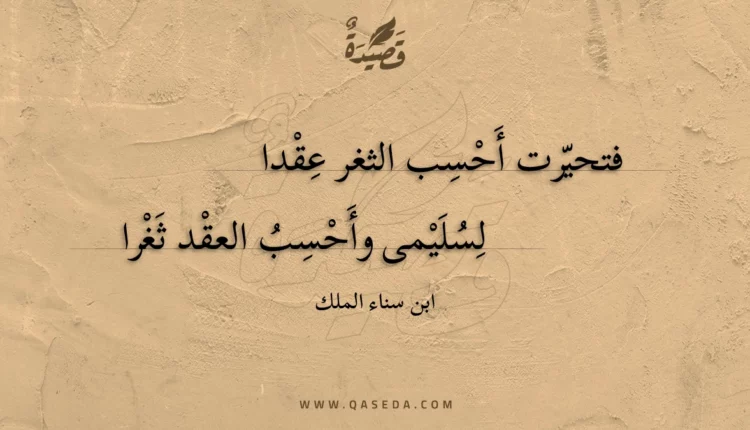 قَصِيْدَةٌ
فتحيّرت أَحْسِب الثغر عِقْدا
لِسُلَيْمى وأَحْسِبُ العقْد ثَغْرا
ابن سناء الملك
WWW.QASEDA.COM